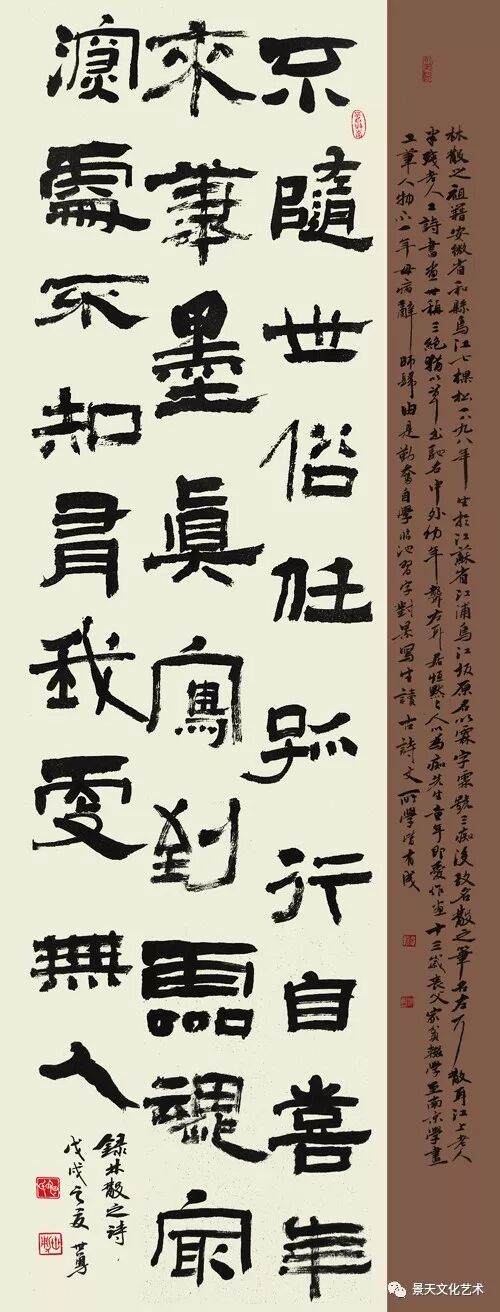 林散之祖籍安徽省和縣烏江七棵松一八九八年生於江蘇省江浦烏江坂原名以霖字霖號三痴後改名散之筆名左耳散耳江上老人
半殘老人工詩書畫世稱三絕猶以草書馳名中外幼年聾左耳居恒默々人以為痴先生童年即愛作畫十三歲喪父家貧輟學至南京學畫
工筆人物不一年母病辭師歸由是勤奮自學臨池習字對景寫生讀古詩文所學皆有成
不隨世俗任孤行自喜年
來筆墨眞寫到靈魂最
深處不知有我更無人
錄林散之詩
戊戌之夏世
景天文化艺术